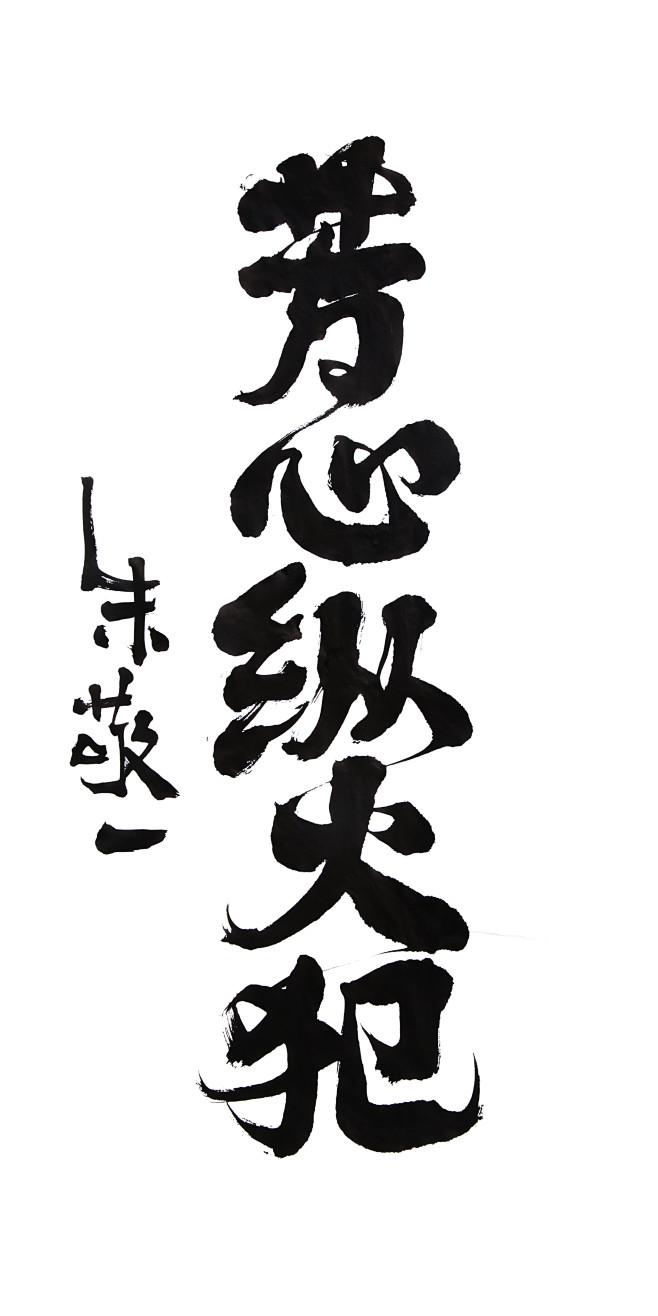 芳心纵火犯
朱敬一